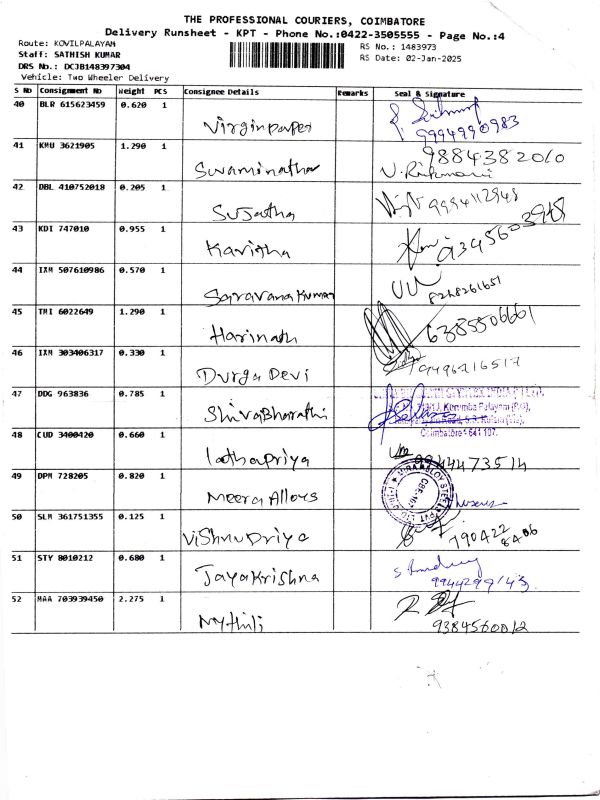 THE PROFESSIONAL COURIERS, COIMBATORE
Delivery Runsheet - KPT - Phone No.:0422-3505555 - Page No.:4
Route: KOVILPALAYAM
Staff: SATHISH KUMAR
DRS No.: DCJB148397304
Vehicle: Two Wheeler Delivery
RS No.: 1483973
RS Date: 02-Jan-2025
S No Consignment No Weight PCS Consignee Details Remarks Seal & Signature
40 BLR 615623459 0.620 1 Virginpaper 9994990983
41 KMU 3621905 1.290 1 Swaminathan 9884382010
42 DBL 410752018 0.205 1 Sujatha 9994112948
43 KDI 747010 0.955 1 Kavitha 9345603918
44 IXM 507610986 0.570 1 Saravana Kumar 8248261651
45 TMI 6022649 1.290 1 Harinath 6385506661
46 IXM 303406317 0.330 1 Durga Devi 9496716517
47 DDG 963836 0.785 1 ShivaBharathi Kurumba Palayam (P.O),
Coimbatore - 641 107.
48 CUD 3400420 0.660 1 lathapriya 9944473514
49 DPM 728205 0.820 1 Meera Alloys
50 SLM 361751355 0.125 1 Vishnu Priya 790422
8406
51 STY 8010212 0.680 1 Jayakrishna 9944299143
52 MAA 703939450 2.275 1 Mythili 9384560012